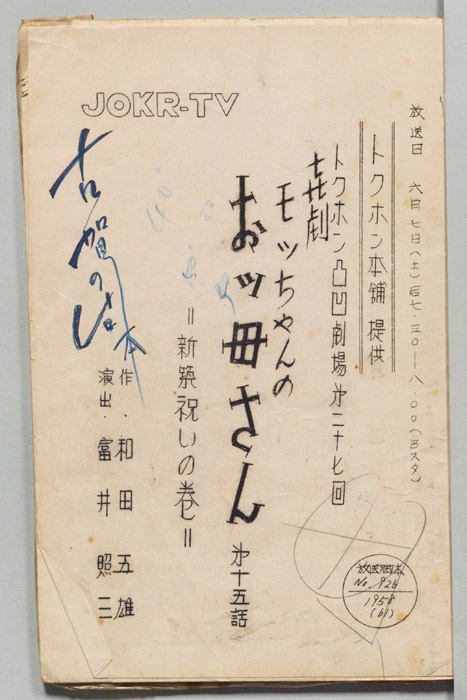 JOKR-TV
放送日 六月七日(土)后七・三〇―八・〇〇(Bスタ)
トクホン本舗 提供
トクホン凸凹劇場 第二十七回
喜劇
モッちゃんの
おッ母さん 第十五話
=新築祝いの巻=
作・和田五雄
演出・富井照三
古賀
本
放送脚本
No. 926
1958
(61)